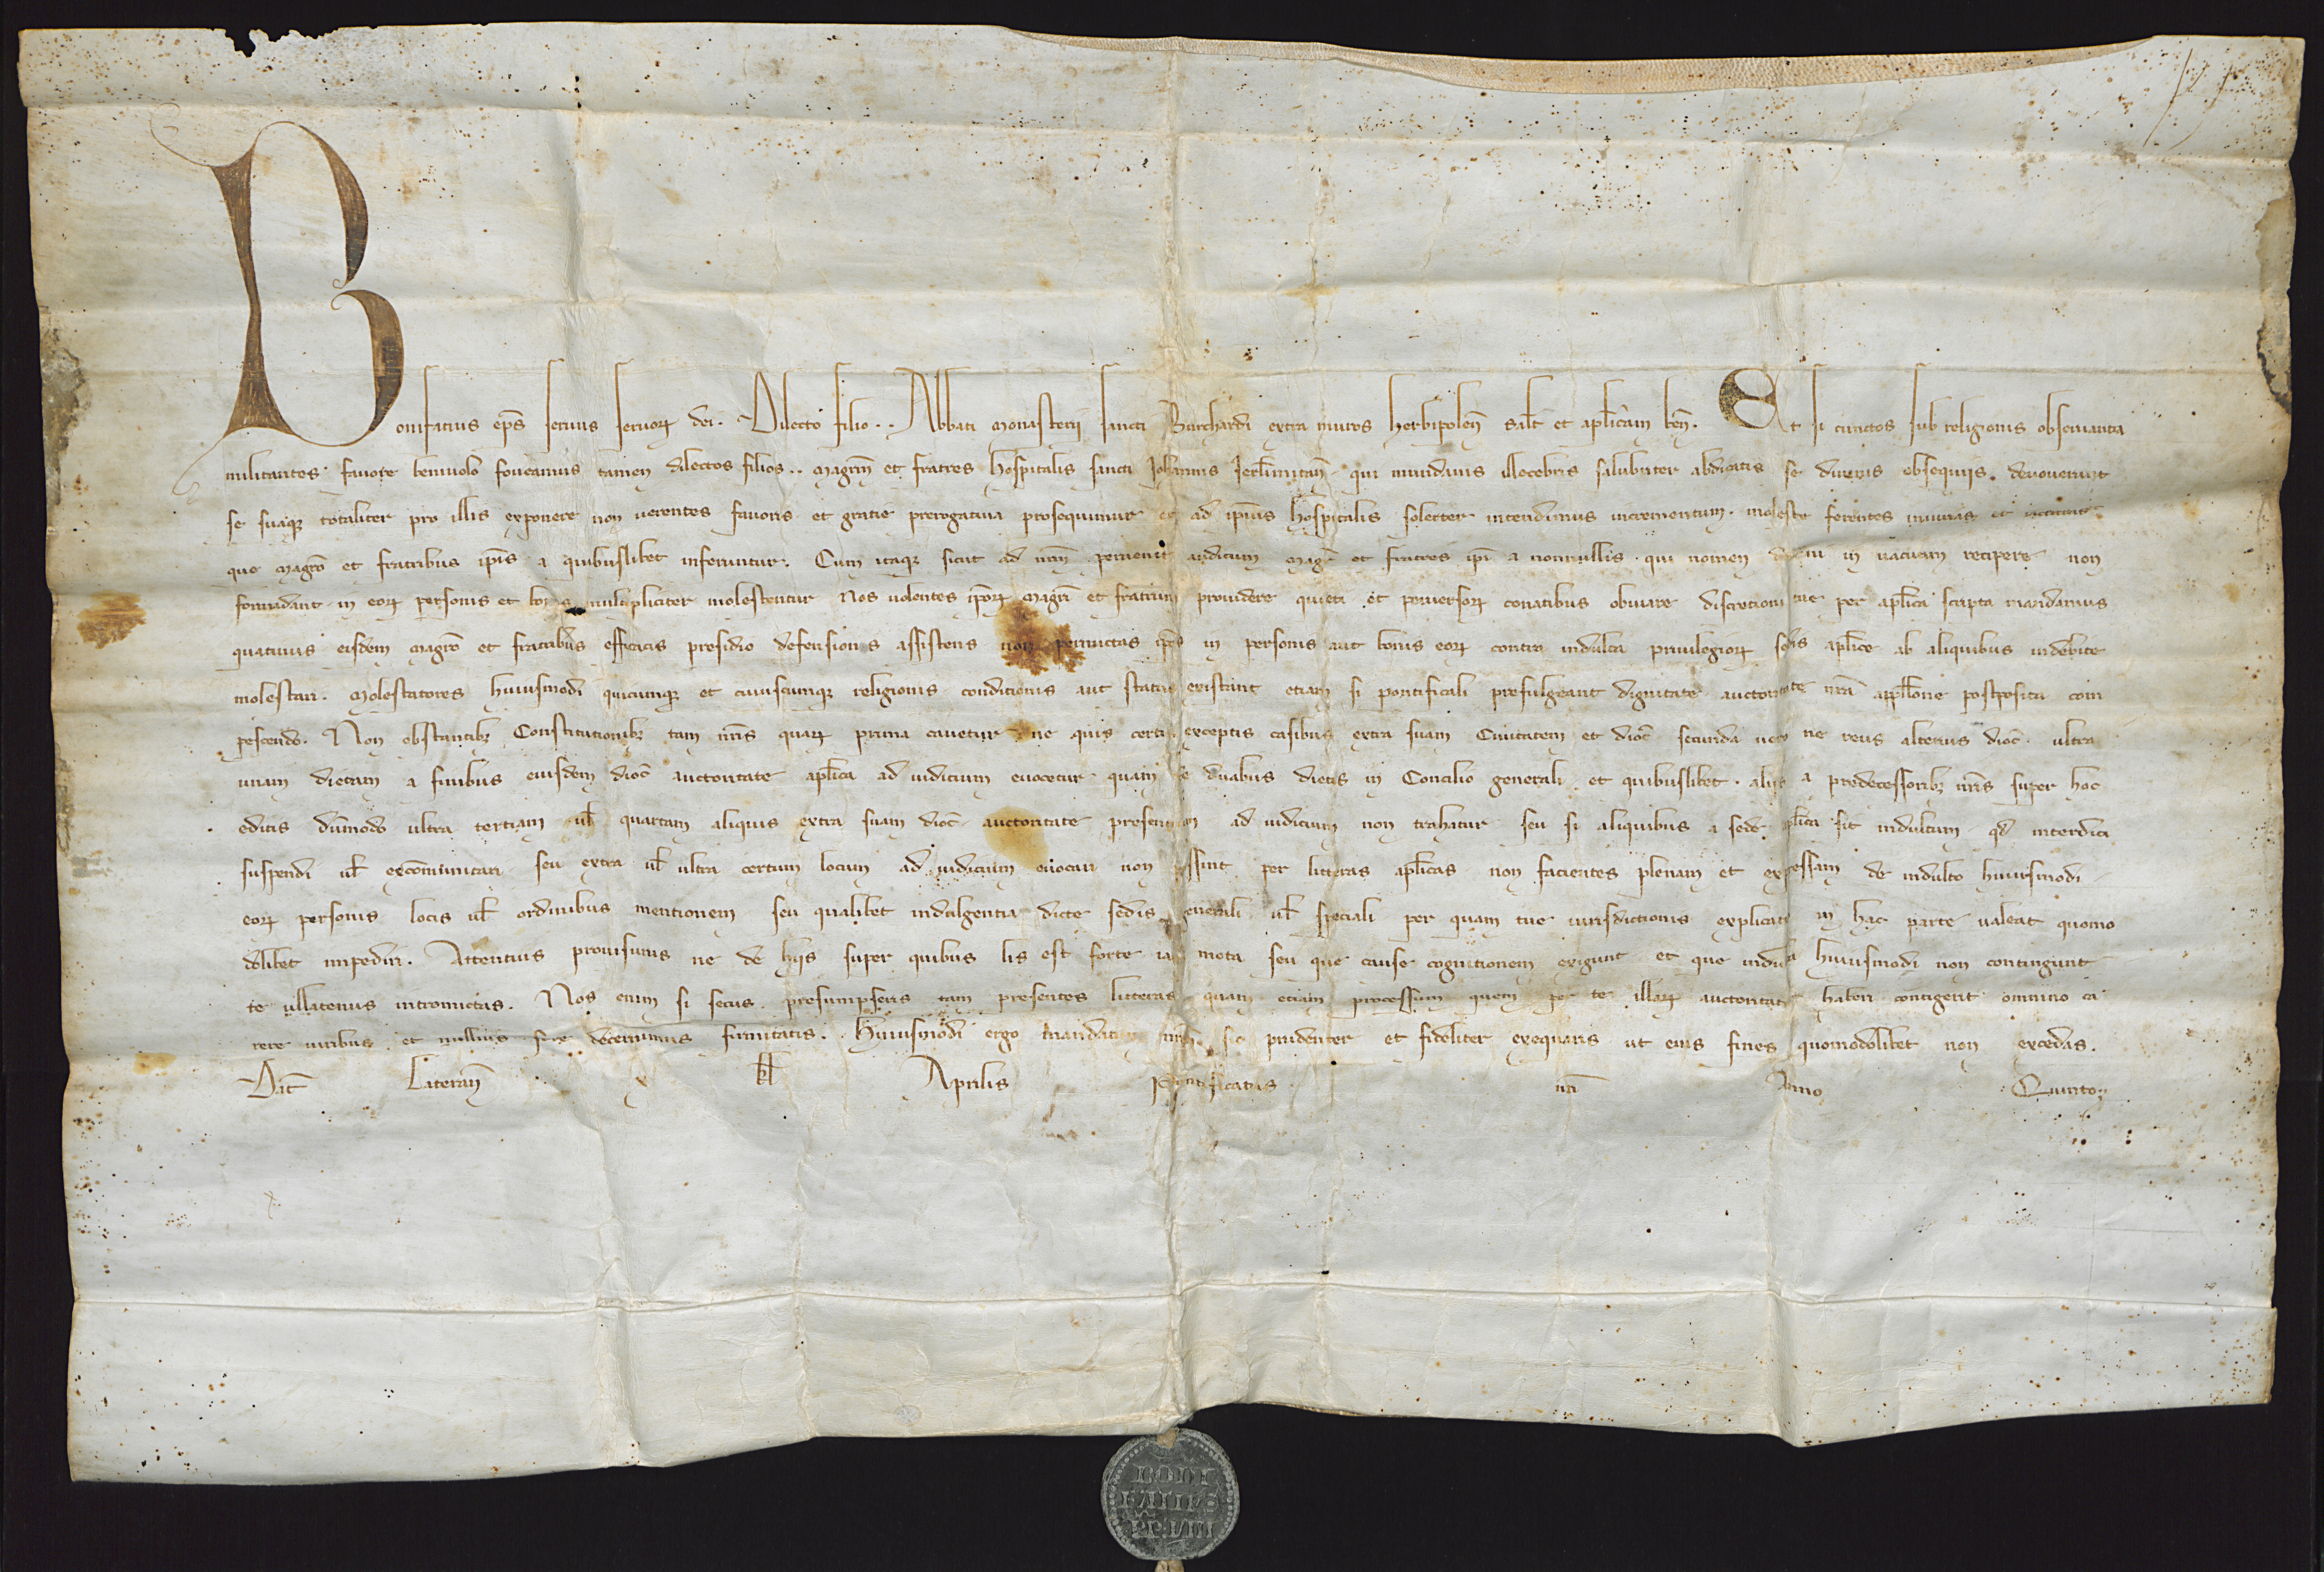 Bonifatius ep̄s seruus seruoꝝ dei. Dilecto filio .. Abbati Monasterii sancti Burchardi extra muros Herbipolen̄ Salt̄ et apl̄icam ben̄. Et si cunctos sub religionis obseruantia
militantes fauore beniuolo foueamus tamen dilectos filios .. Magr̄m et fratres Hospitalis sancti Johannis Jerl̄imitan̄ qui mundanis illecebris salubriter abdicatis se diuinis obsequiis deuouerunt
se suaqꝫ totaliter pro illis exponere non uerentes fauoris et gratie prerogatiua prosequimur et ad ip̄ius Hospitalis solerter intendimus incrementum. moleste ferentes iniurias et
que Magr̄o et fratribus ip̄is a quibuslibet inferuntur. Cum itaqꝫ sicut ad nr̄m peruenit auditum Magr̄ et fratres ip̄i a nonnullis qui nomen diuinum in uacuum recipere non
formidant in eoꝝ personis et bonis multipliciter molestentur Nos uolentes ip̄oꝝ Magr̄i et fratrum prouidere quieti et peruersoꝝ conatibus obuiare discretioni tue per apl̄ica scripta mandamus
quatinus eisdem Magr̄o et fratribus efficacis presidio defensionis assistens non permittas ip̄os in personis aut bonis eoꝝ contra indulta priuilegioꝝ sedis apl̄ice ab aliquibus indebite
molestari. Molestatores huiusmodi quicunqꝫ et cuiuscunqꝫ religionis conditionis aut status existant etiam si pontificali prefulgeant dignitate auctoritate nr̄a appell̄one postposita com
pescendo. Non obstantibꝫ Constitutionibꝫ tam nr̄is quaꝝ prima cauetur ne quis certis exceptis casibus extra suam Ciuitatem et dioc̄ secunda uero ne reus alterius dioc̄ ultra
unam dietam a finibus eiusdem dioc̄ auctoritate apl̄ica ad iudicium euocetur quam de duabus dietis in Concilio generali et quibuslibet aliis a predecessoribꝫ nr̄is super hoc
editis dūmodo ultra tertiam ul̄ quartam aliquis extra suam dioc̄ auctoritate presentium ad iudicium non trahatur seu si aliquibus a sede apl̄ica sit indultum qd̄ interdici
suspendi ul̄ excōmunicari seu extra ul̄ ultra certum locum ad iudicium euocari non possint per litteras apl̄icas non facientes plenam et expressam de indulto huiusmodi
eoꝝ personis locis ul̄ ordinibus mentionem seu qualibet indulgentia dicte sedis generali ul̄ speciali per quam tue iurisdictionis explicatio in hac parte ualeat quomo
dolibet impediri. Attentius prouisurus ne de hiis super quibus lis est forte iam mota seu que cause cognitionem exigunt et que indulta huiusmodi non contingunt
te ullatenus intromittas. Nos enim si secus presumpseris tam presentes litteras quam etiam processum quem per te illaꝝ auctoritate haberi contigerit omnino ca
rere uiribus et nullius fore decernimus firmitatis. Huiusmodi ergo mandatum nr̄m sic prudenter et fideliter exequaris ut eius fines quomodolibet non excedas.
Dat̄ Lateran̄ x kl̄ Aprilis Pontificatus nr̄i Anno Quinto
BONI
FATIUS
PP VIII